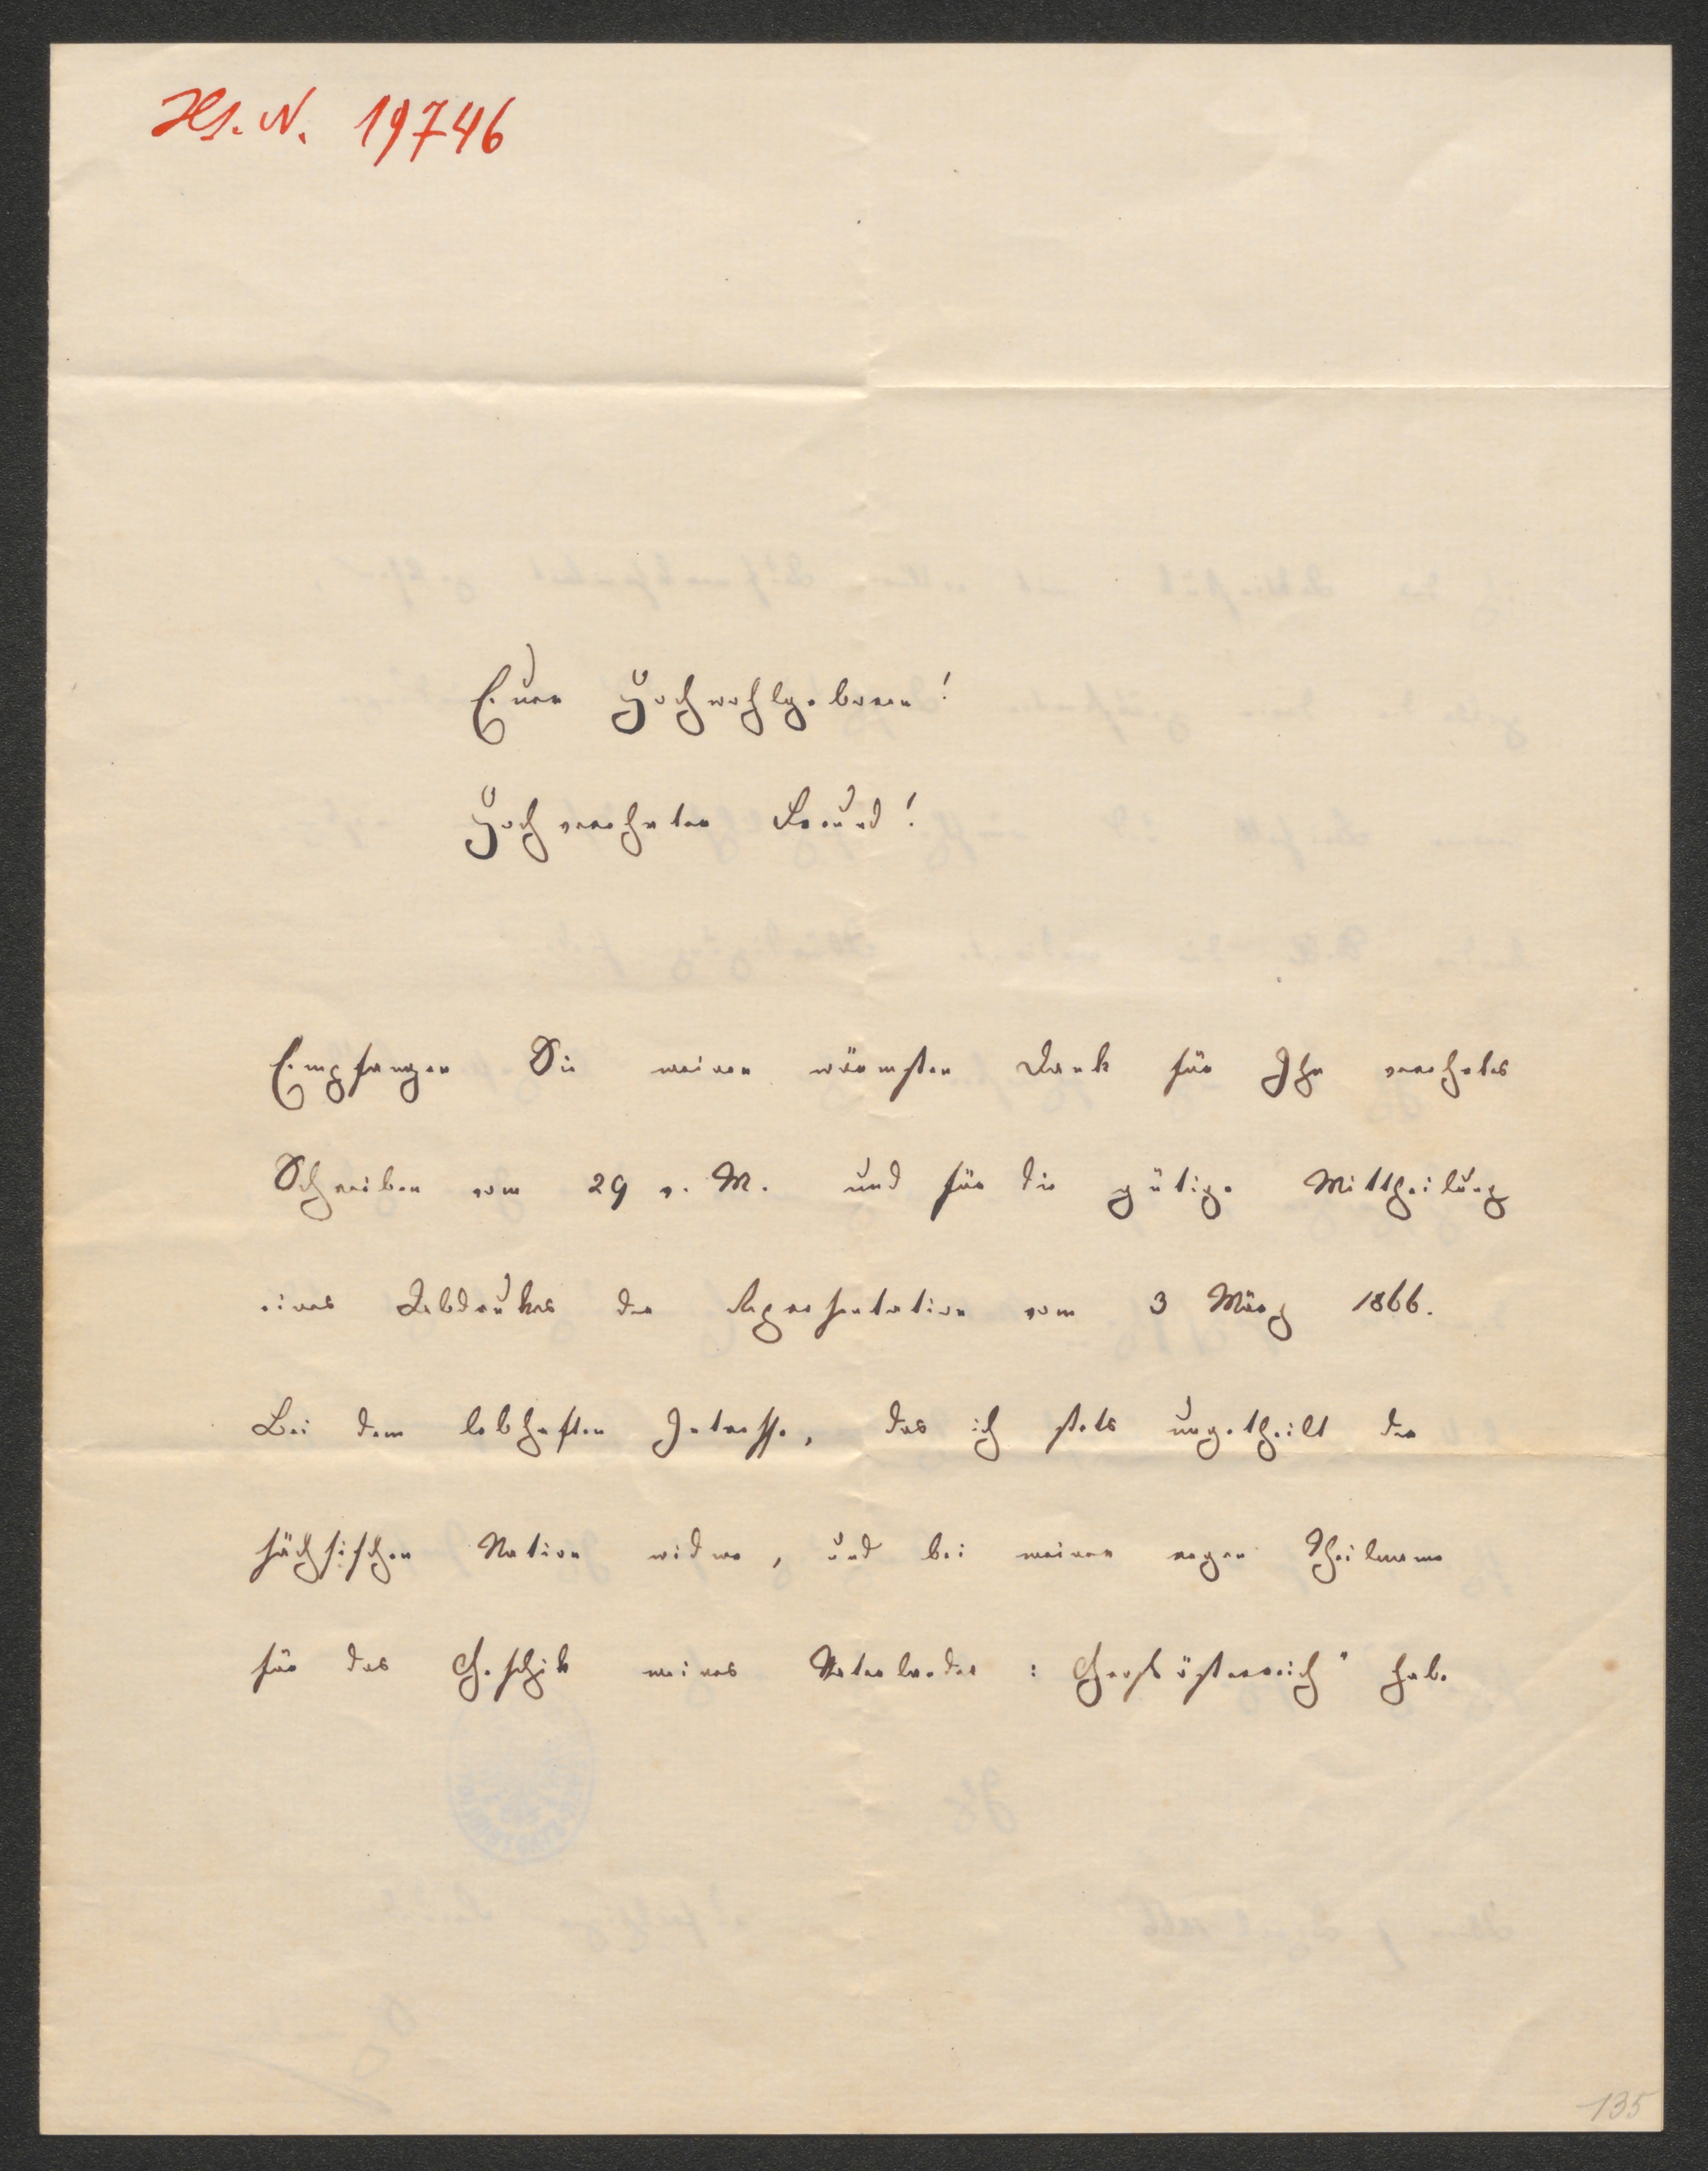 Hs. N. 19746
Euer Hochwohlgeboren!
Hochverehrter Freund!
Empfangen Sie meinen wärmsten Dank für Ihr verehrtes
Schreiben vom 29 v. M. und für die gütige Mittheilung
eines Abdrukes der Representation vom 3 März 1866.
Bei dem lebhaften Interesse, das ich stets ungetheilt der
sächsischen Nation widme, und bei meiner regen Theilname
für das Geschik meines Vaterlandes : Grossösterreich" habe
135